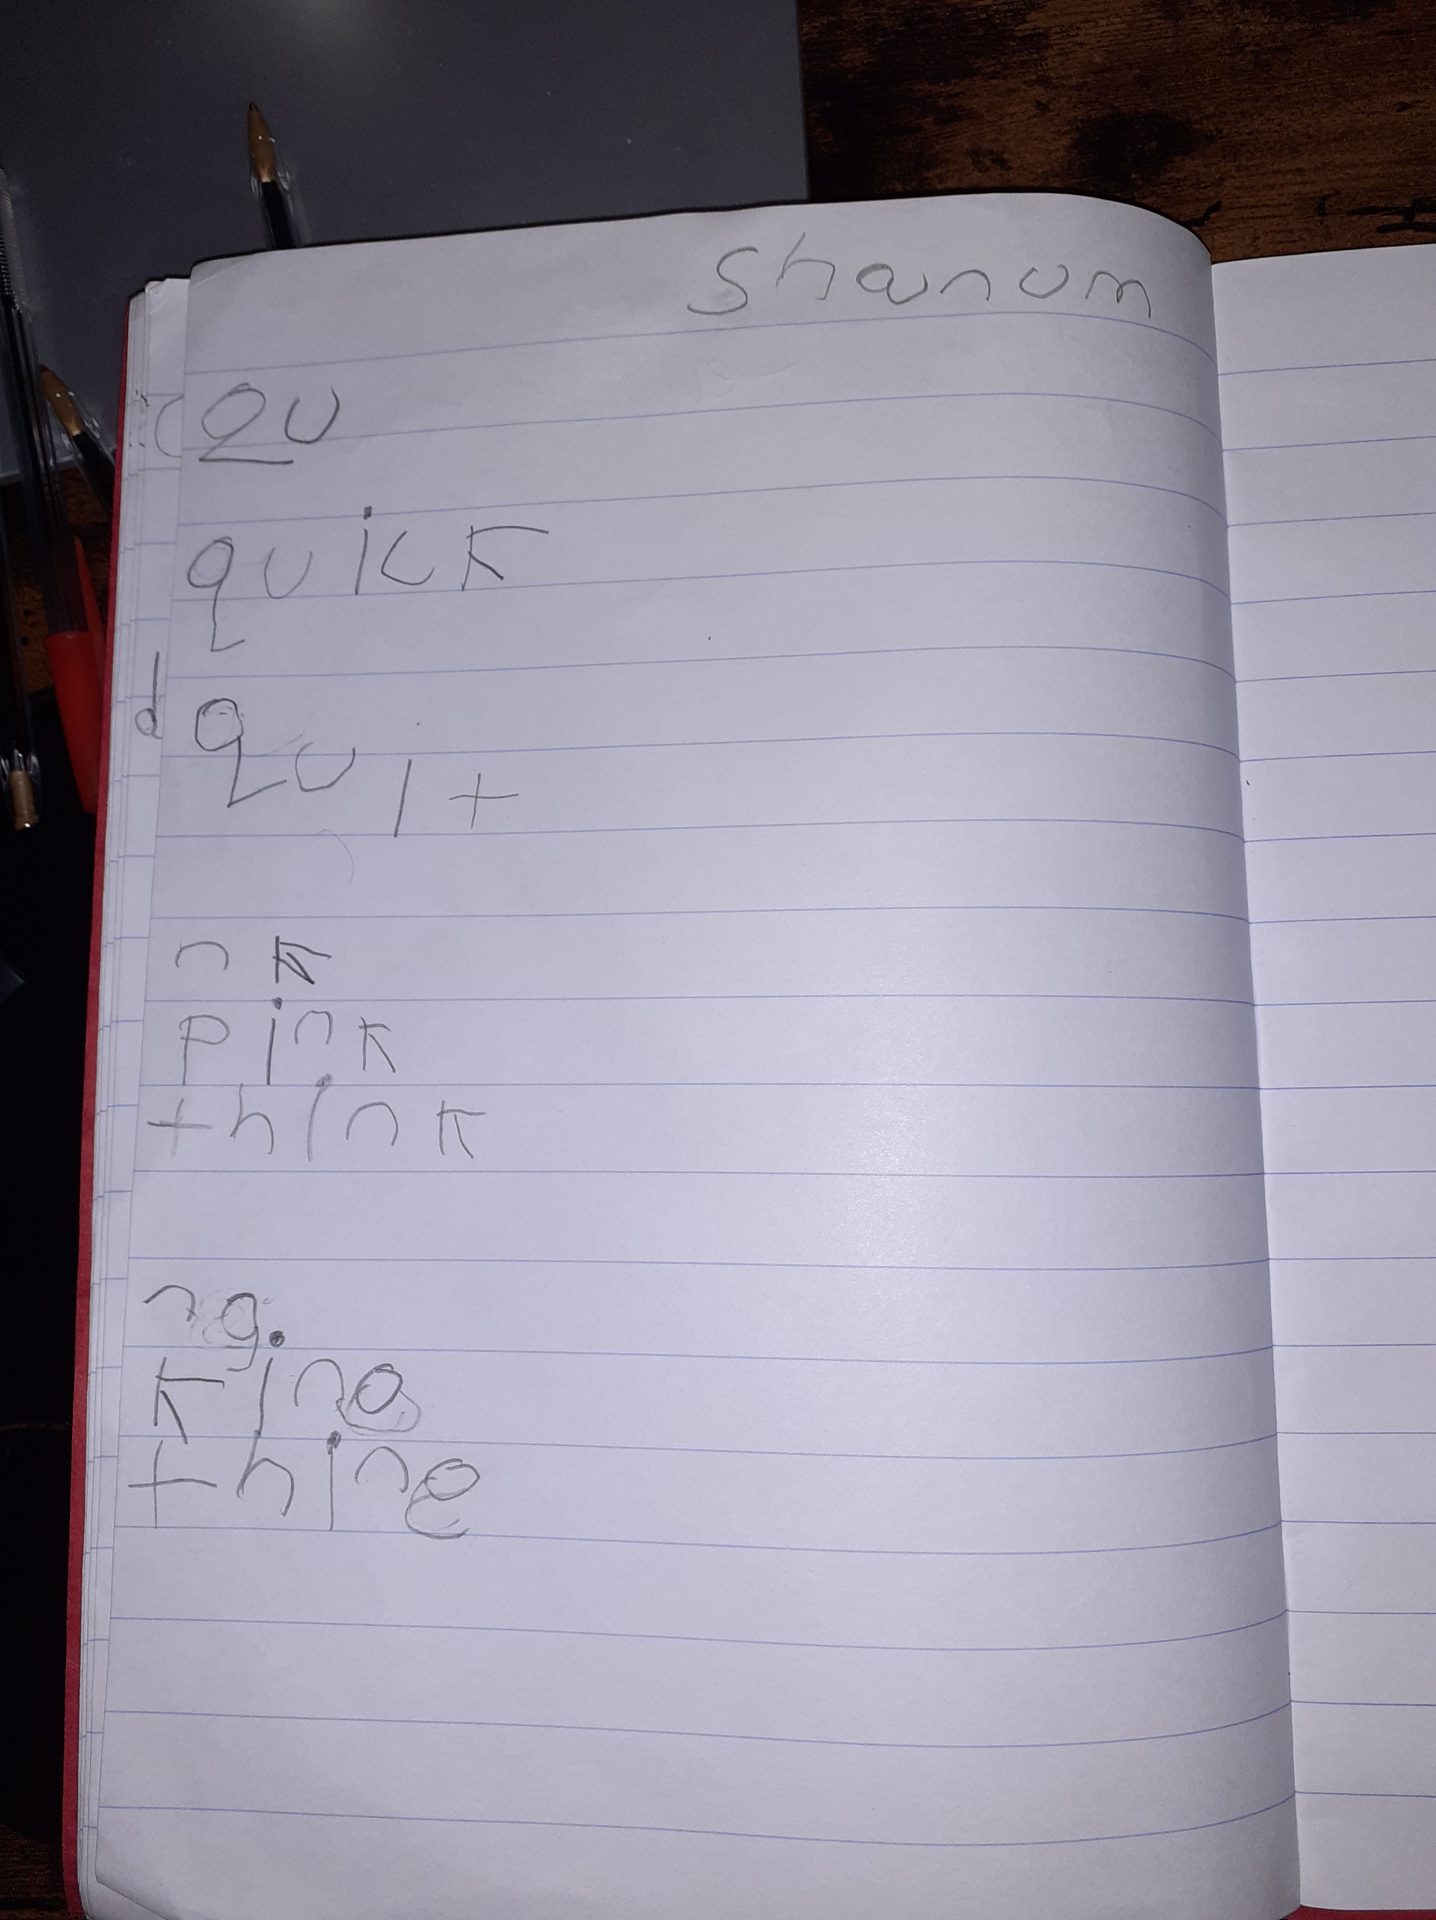 Shanum
qu
quick
quit
nk
pink
think
ng
king
thing